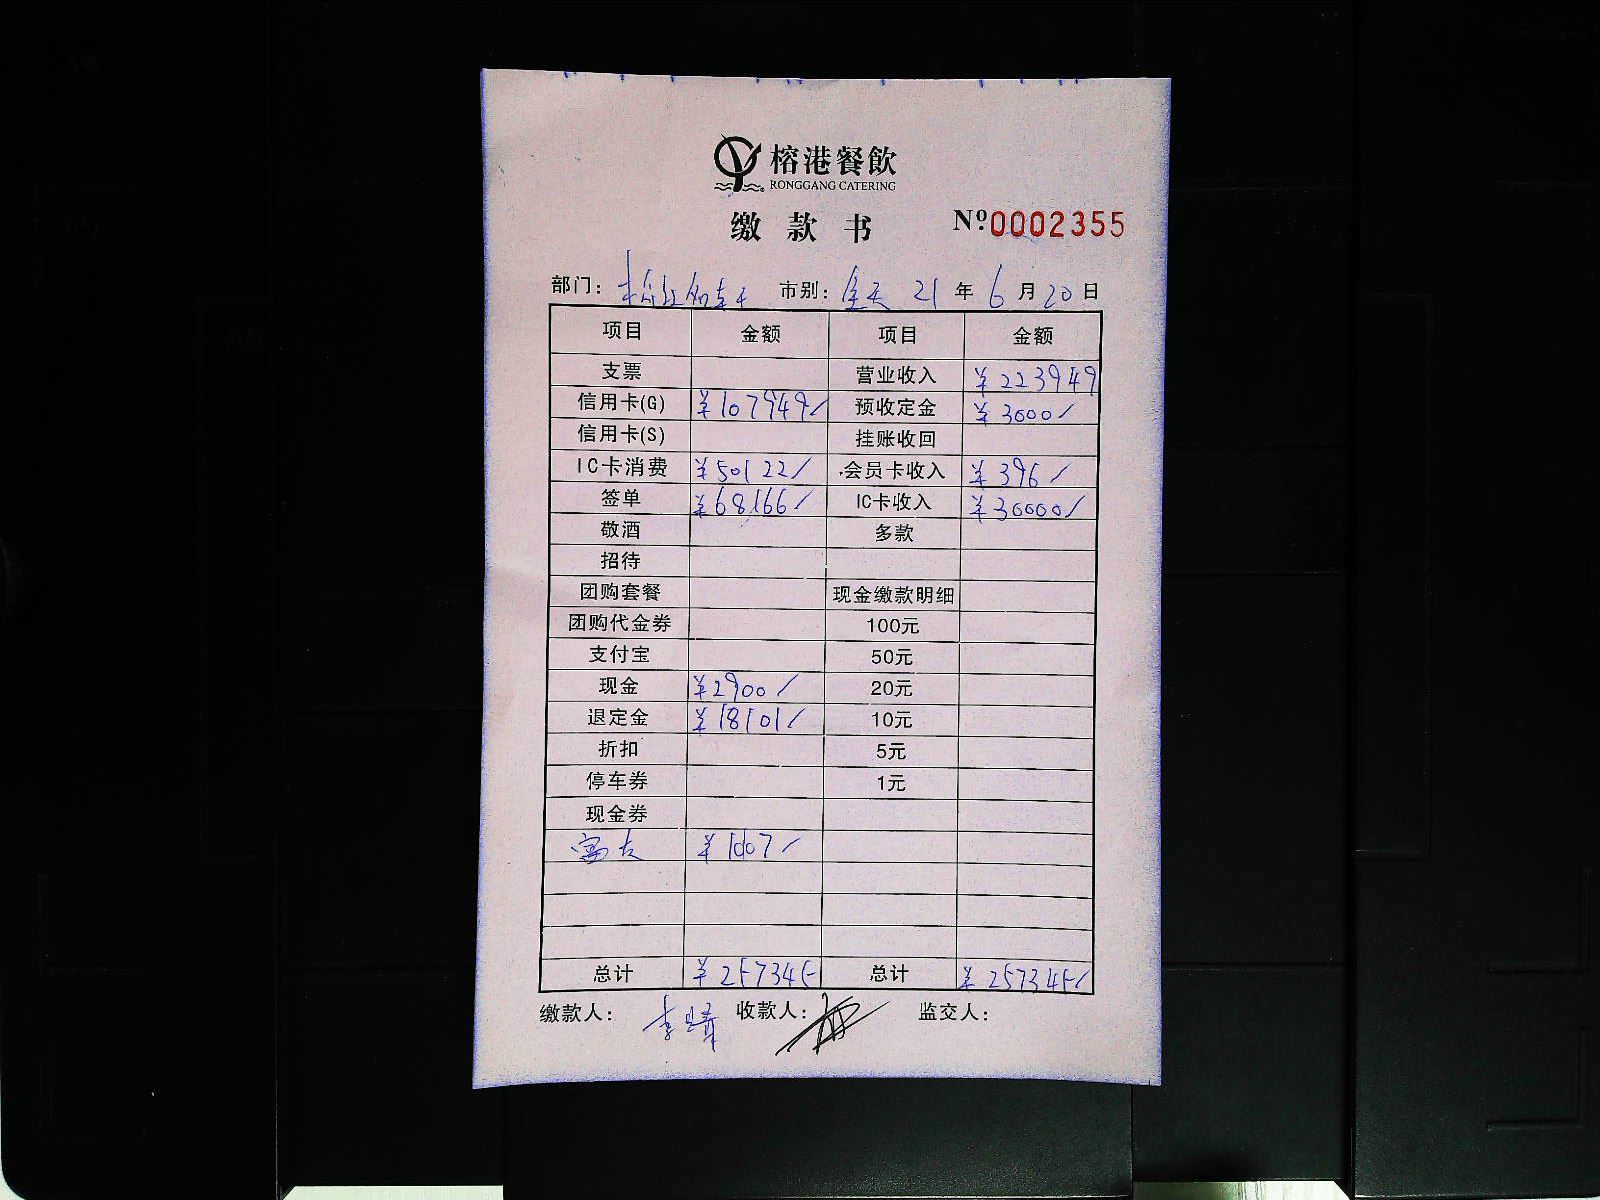 榕港餐飲
RONGGANG CATERING
缴款书 Nº:0002355
部门: 市别: 全天 21 年 6 月 20 日
项目 金额 项目 金额
支票 营业收入 ¥223949
信用卡(G) ¥107949/ 预收定金 ¥3000/
信用卡(S) 挂账收回
IC卡消费 ¥50122/ 会员卡收入 ¥396/
签单 ¥68166/ IC卡收入 ¥30000/
敬酒 多款
招待
团购套餐 现金缴款明细
团购代金券 100元
支付宝 50元
现金 ¥2900/ 20元
退定金 ¥18101/ 10元
折扣 5元
停车券 1元
现金券
富友 ¥10107/
总计 ¥257345 总计 ¥257345/
缴款人: 李晴 收款人: 监交人: